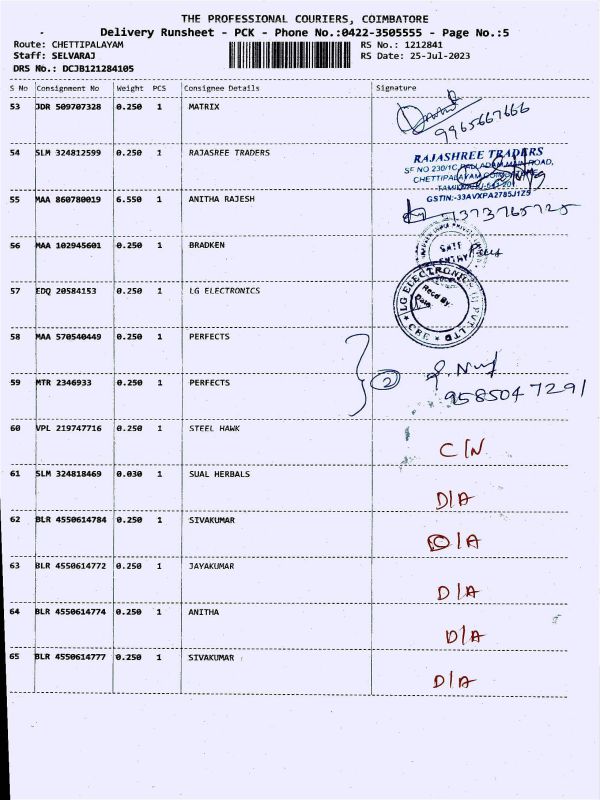 THE PROFESSIONAL COURIERS, COIMBATORE
Delivery Runsheet - PCK - Phone No.:0422-3505555 - Page No.:5
Route: CHETTIPALAYAM RS No.: 1212841
Staff: SELVARAJ RS Date: 25-Jul-2023
DRS No.: DCJB121284105
S No Consignment No Weight PCS Consignee Details Signature
53 JDR 509707328 0.250 1 MATRIX
9965667666
54 SLM 324812599 0.250 1 RAJASREE TRADERS
RAJASHREE TRADERS
SF NO 230/1C, PALLADAM MAIN ROAD,
CHETTIPALAYAM, COIMBATORE
TAMILNADU-641 201
GSTIN:-33AVXPA2785J1Z5
55 MAA 860780019 6.550 1 ANITHA RAJESH
7373765725
56 MAA 102945601 0.250 1 BRADKEN
GATE
ENTRY
57 EDQ 20584153 0.250 1 LG ELECTRONICS
LG ELECTRONICS
Recd By:
Date:
CBE
58 MAA 570540449 0.250 1 PERFECTS
59 MTR 2346933 0.250 1 PERFECTS
2
9585047291
60 VPL 219747716 0.250 1 STEEL HAWK
C/N
61 SLM 324818469 0.030 1 SUAL HERBALS
D/A
62 BLR 4550614784 0.250 1 SIVAKUMAR
D/A
63 BLR 4550614772 0.250 1 JAYAKUMAR
D/A
64 BLR 4550614774 0.250 1 ANITHA
D/A
65 BLR 4550614777 0.250 1 SIVAKUMAR
D/A